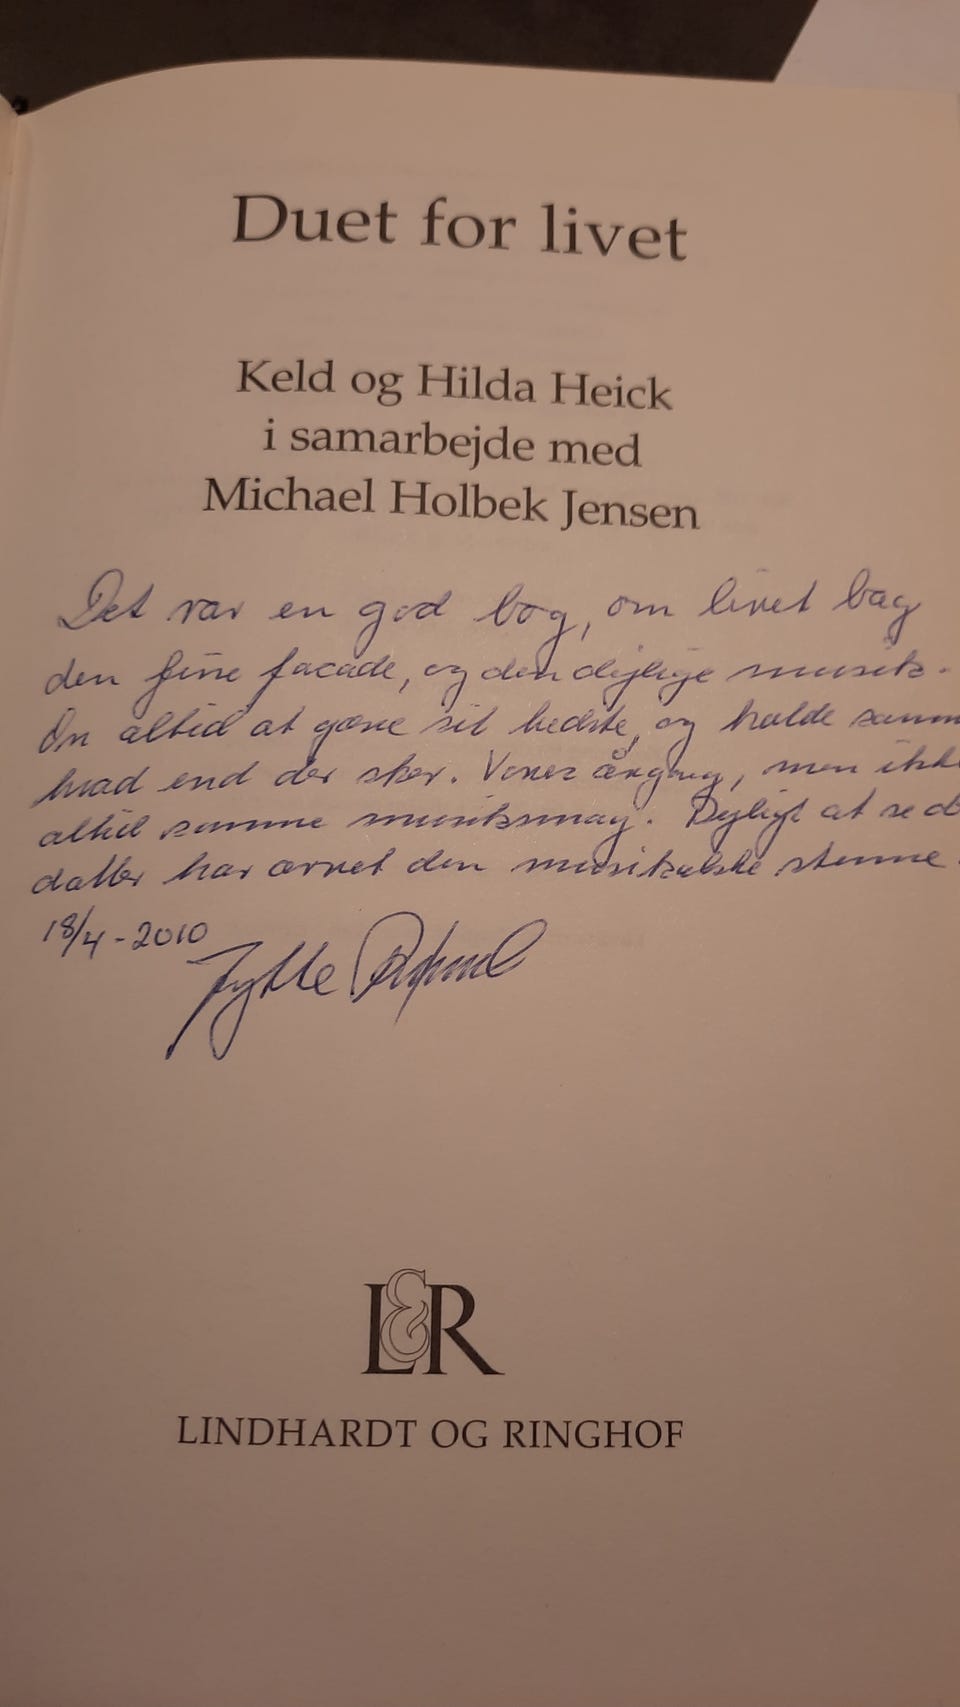 Duet for livet
Keld og Hilda Heick
i samarbejde med
Michael Holbek Jensen
Det var en god bog, om livet bag
den fine facade, og den dejlige musik.
Om altid at gøre sit bedste, og holde samm
hvad end der sker. Vores årgang, men ikke
altid samme musiksmag. Dejligt at se d
datter har arvet den musikalske stemme.
18/4-2010
Jytte
L&R
LINDHARDT OG RINGHOF